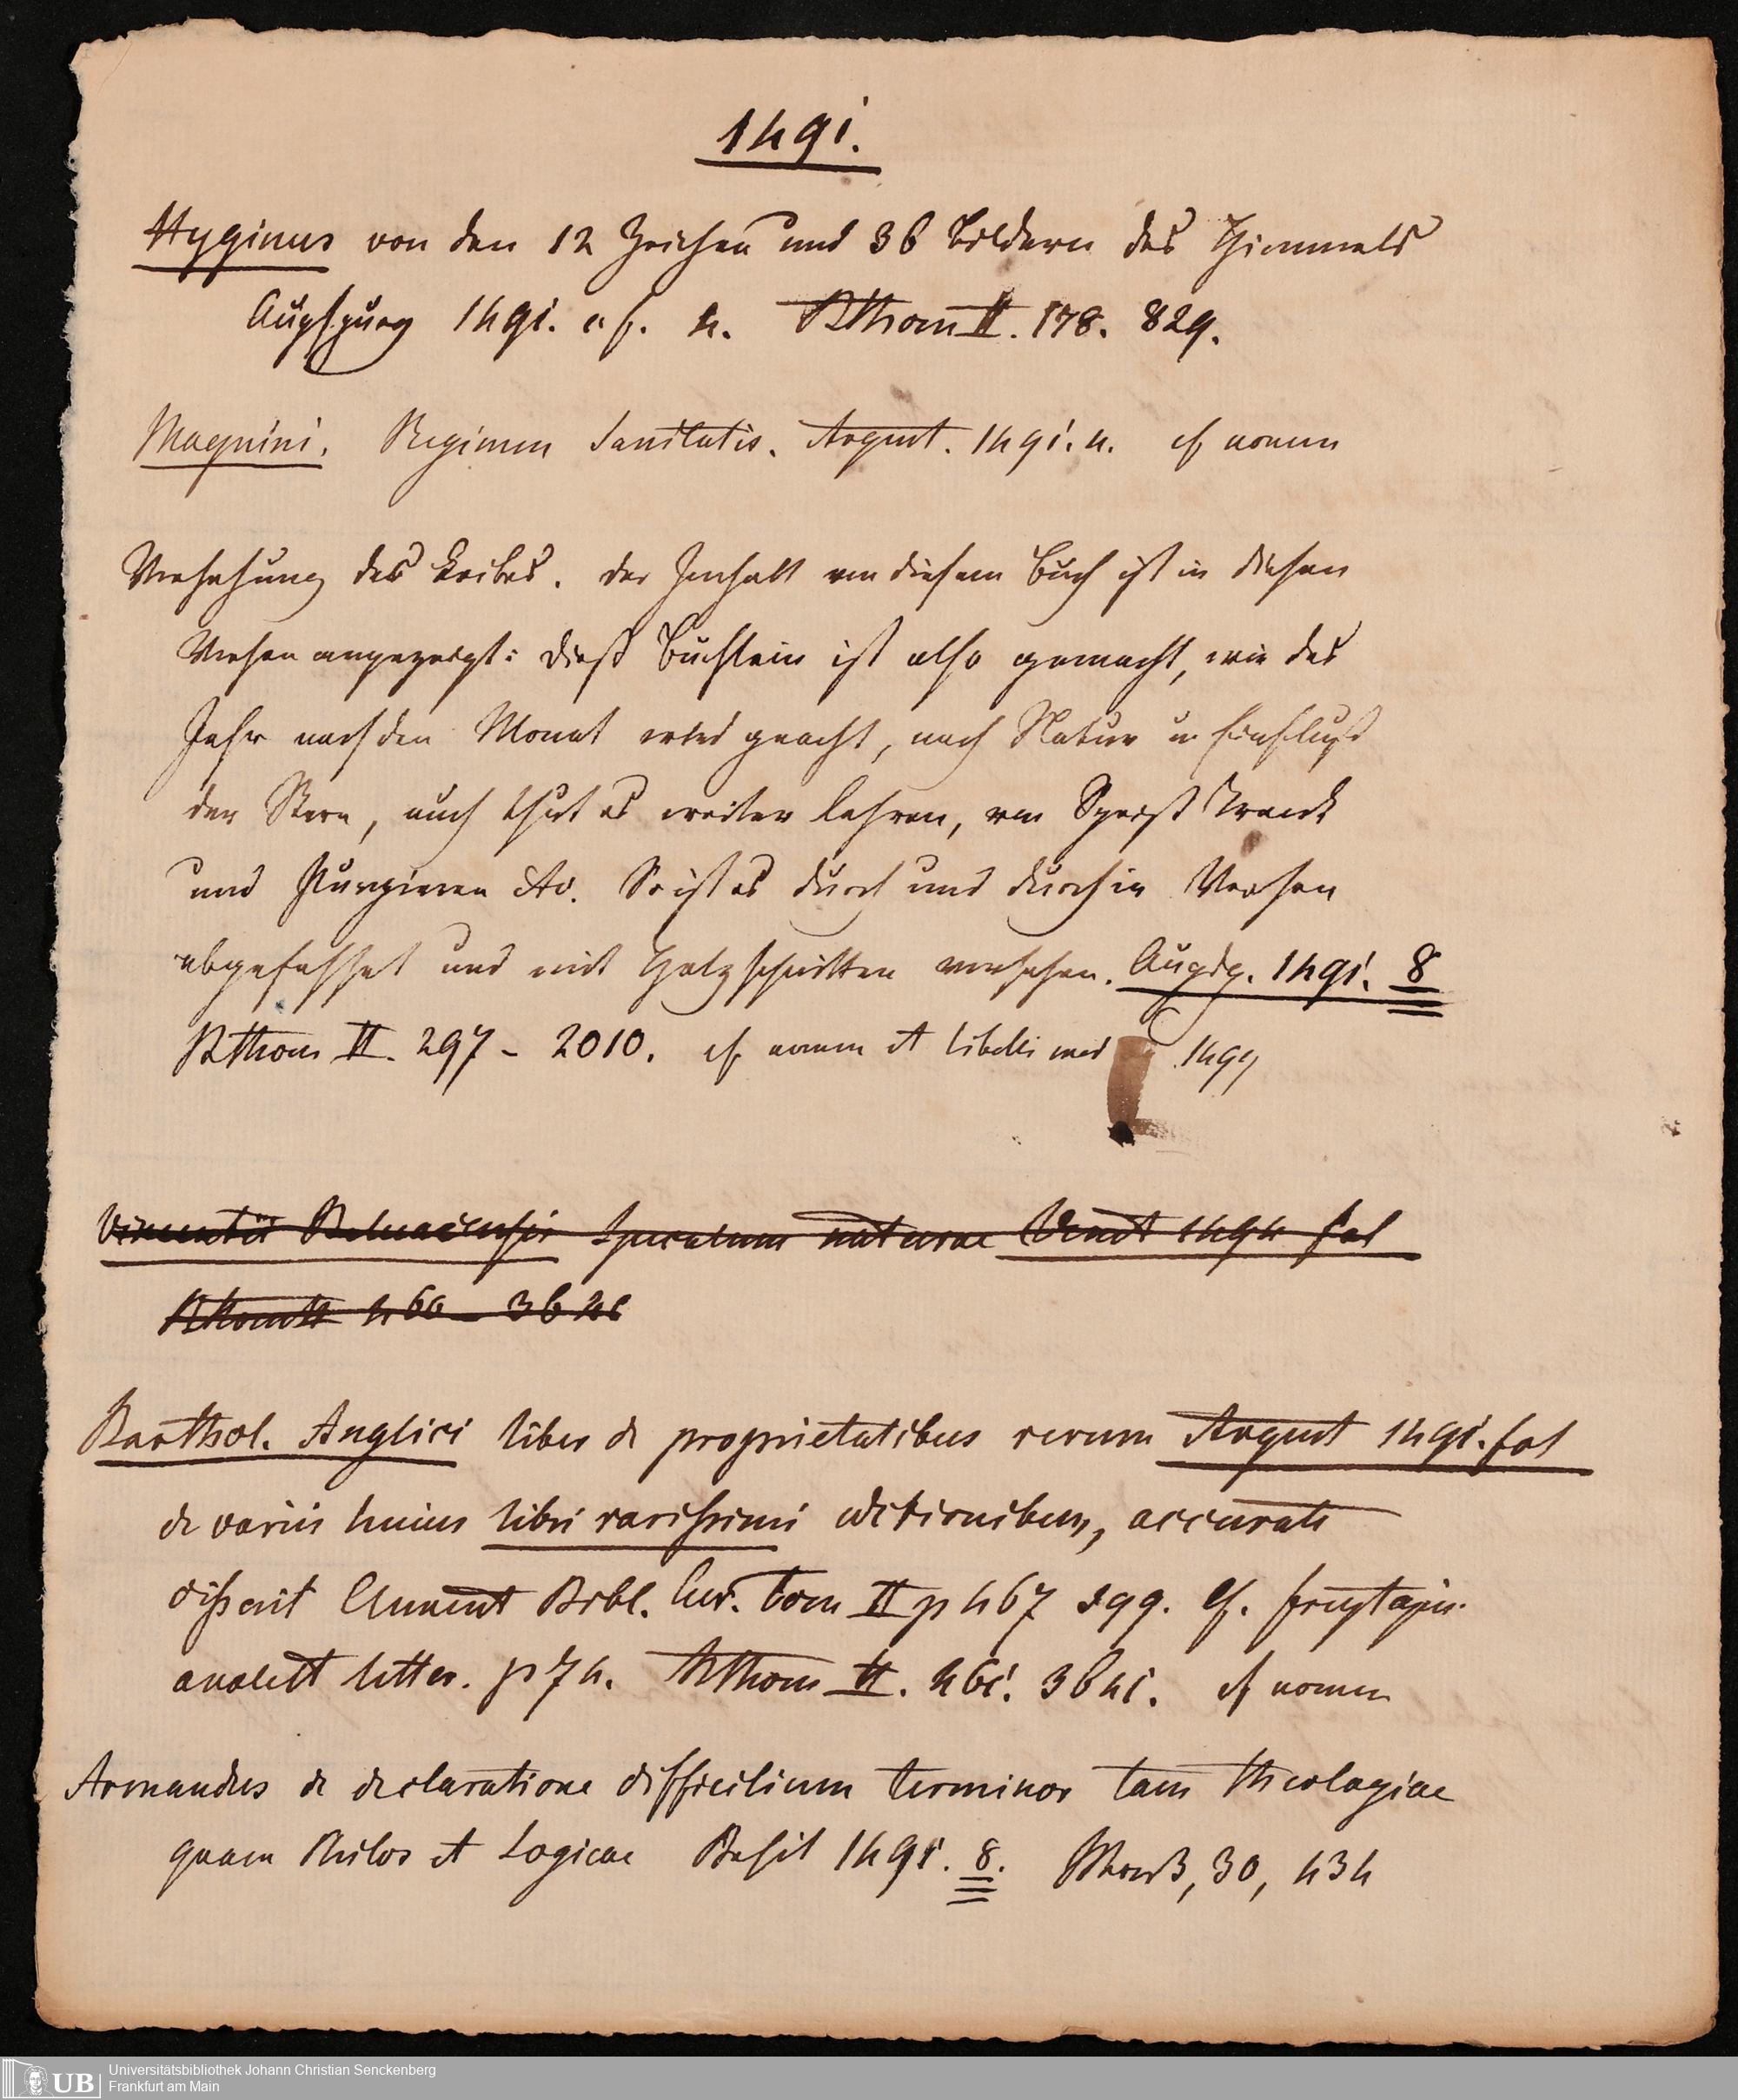 1491.
Hyginus von den 12 Zeichen und 36 Bildern des Himmels
Augspurg 1491. cf. 4. RThom II. 178. 829.
Magnini. Regimen Sanitatis. August. 1491. 4. cf nomen
Versehung des Leibes. der Innhalt von diesem Buch ist in diesen
Versen angezeigt: dieß Büchlein ist also gemacht, wie das
Jahr nach den Monat wird geacht, nach Natur u Einfluß
der Stern, auch thut es weiter lehren, von Speiß Tranck
und Purgieren etc. So ist es durch und durch in Versen
abgefasset und mit Holzschnitten versehen. Augsp. 1491. 8
RThom II. 297 - 2010. cf nomen et libelli med 1499
Vincentii Beluacensis Speculum naturae Venet 1494 fol
RThom II 460 - 3640
Barthol. Anglici liber de proprietatibus rerum August 1491. fol
de variis huius libri rarissimi editionibus, accurate
disserit Clement Bibl. Cur. tom II p 467 sqq. cf. Freytagii
analect litter. p 74. RThom II. 461. 3641. cf nomen
Armandus de declaratione difficilium terminor tam theologiae
quam Philos et Logicae Basil 1491. 8. 30, 434
Universitätsbibliothek Johann Christian Senckenberg
Frankfurt am Main
UB